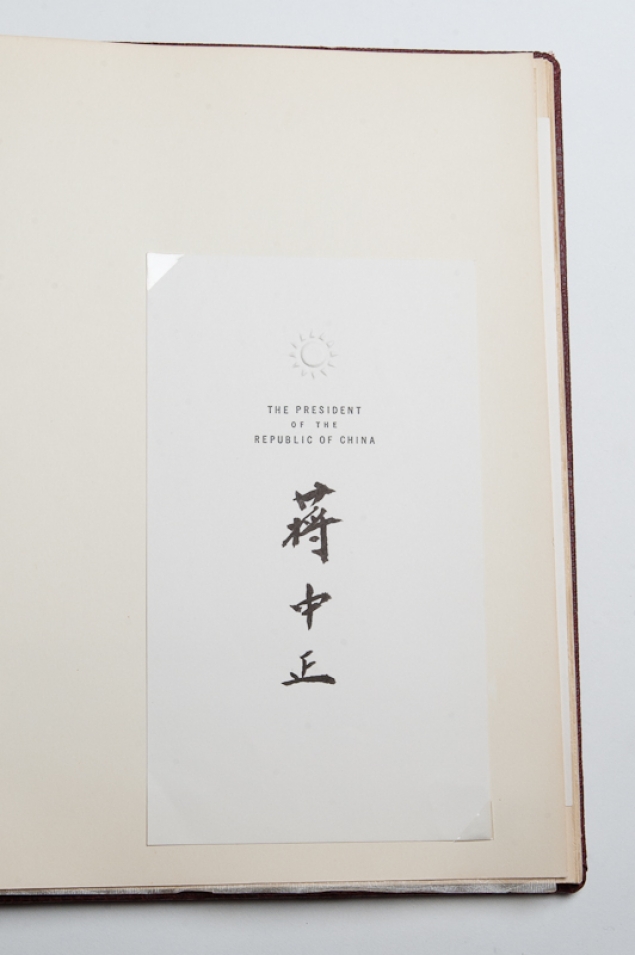 THE PRESIDENT
OF THE
REPUBLIC OF CHINA
蔣中正